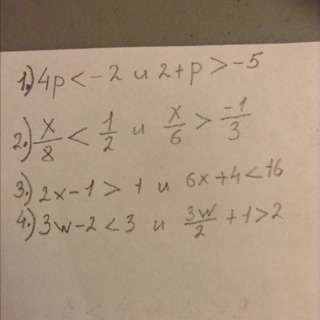 1.) 4p < -2 и 2+p > -5
2.) x/8 < 1/2 и x/6 > -1/3
3.) 2x-1 > 1 и 6x+4 < 16
4.) 3w-2 < 3 и 3w/2 + 1 > 2